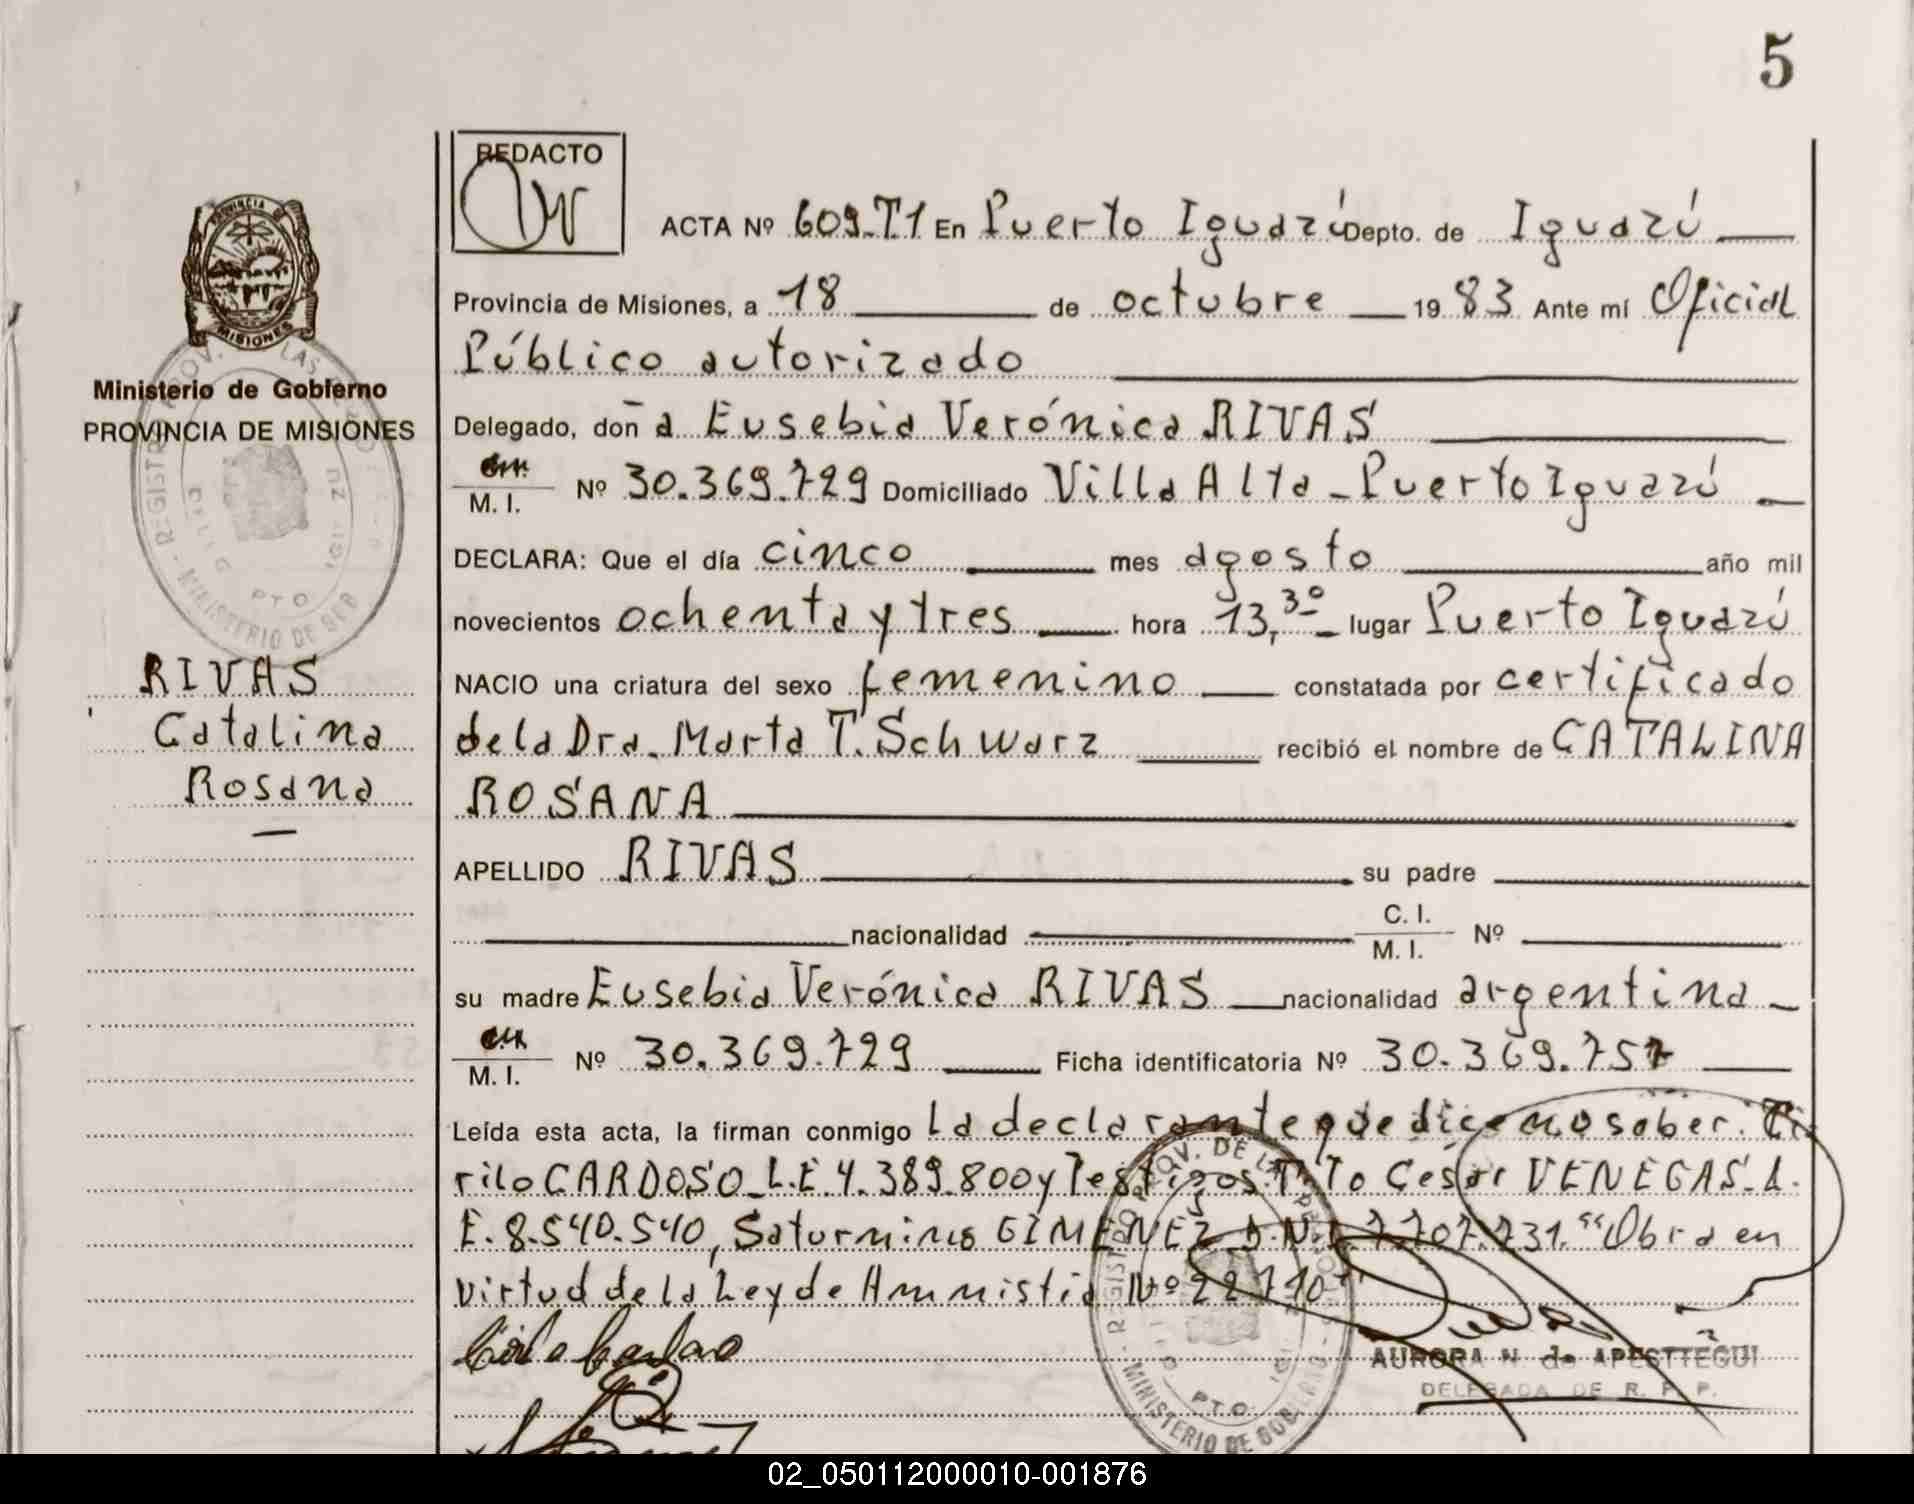 5
REDACTO
ACTA Nº 609.T1 En Puerto Iguazú Depto. de Iguazú
Provincia de Misiones, a 18 de octubre 1983 Ante mí Oficial
Público autorizado
Delegado, doña Eusebia Verónica RIVAS
M. I. Nº 30.369.729 Domiciliado Villa Alta - Puerto Iguazú
DECLARA: Que el día cinco mes agosto año mil
novecientos ochenta y tres hora 13,30 lugar Puerto Iguazú
NACIO una criatura del sexo femenino constatada por certificado
de la Dra. Marta T. Schwarz recibió el nombre de CATALINA
ROSANA
APELLIDO RIVAS su padre
nacionalidad C. I. M. I. Nº
su madre Eusebia Verónica RIVAS nacionalidad argentina
M. I. Nº 30.369.729 Ficha identificatoria Nº 30.369.757
Leída esta acta, la firman conmigo La declarante que dice no saber. Ci
rilo CARDOSO L.E. 4.389.800 y Testigos. Tito Cesar VENEGAS. L.
E. 8.540.540, Saturnino GIMENEZ D.N.I. 7.707.731. "Obra en
virtud de la Ley de Amnistia Nº 22710"
Cirilo Cardoso
AURORA N. de APESTTEGUI
DELEGADA DE R. P. P.
PROVINCIA DE
MISIONES
Ministerio de Gobierno
PROVINCIA DE MISIONES
RIVAS
Catalina
Rosana
REGISTRO PROV. DE LAS PERSONAS
MINISTERIO DE GOBIERNO
PTO.
02_050112000010-001876